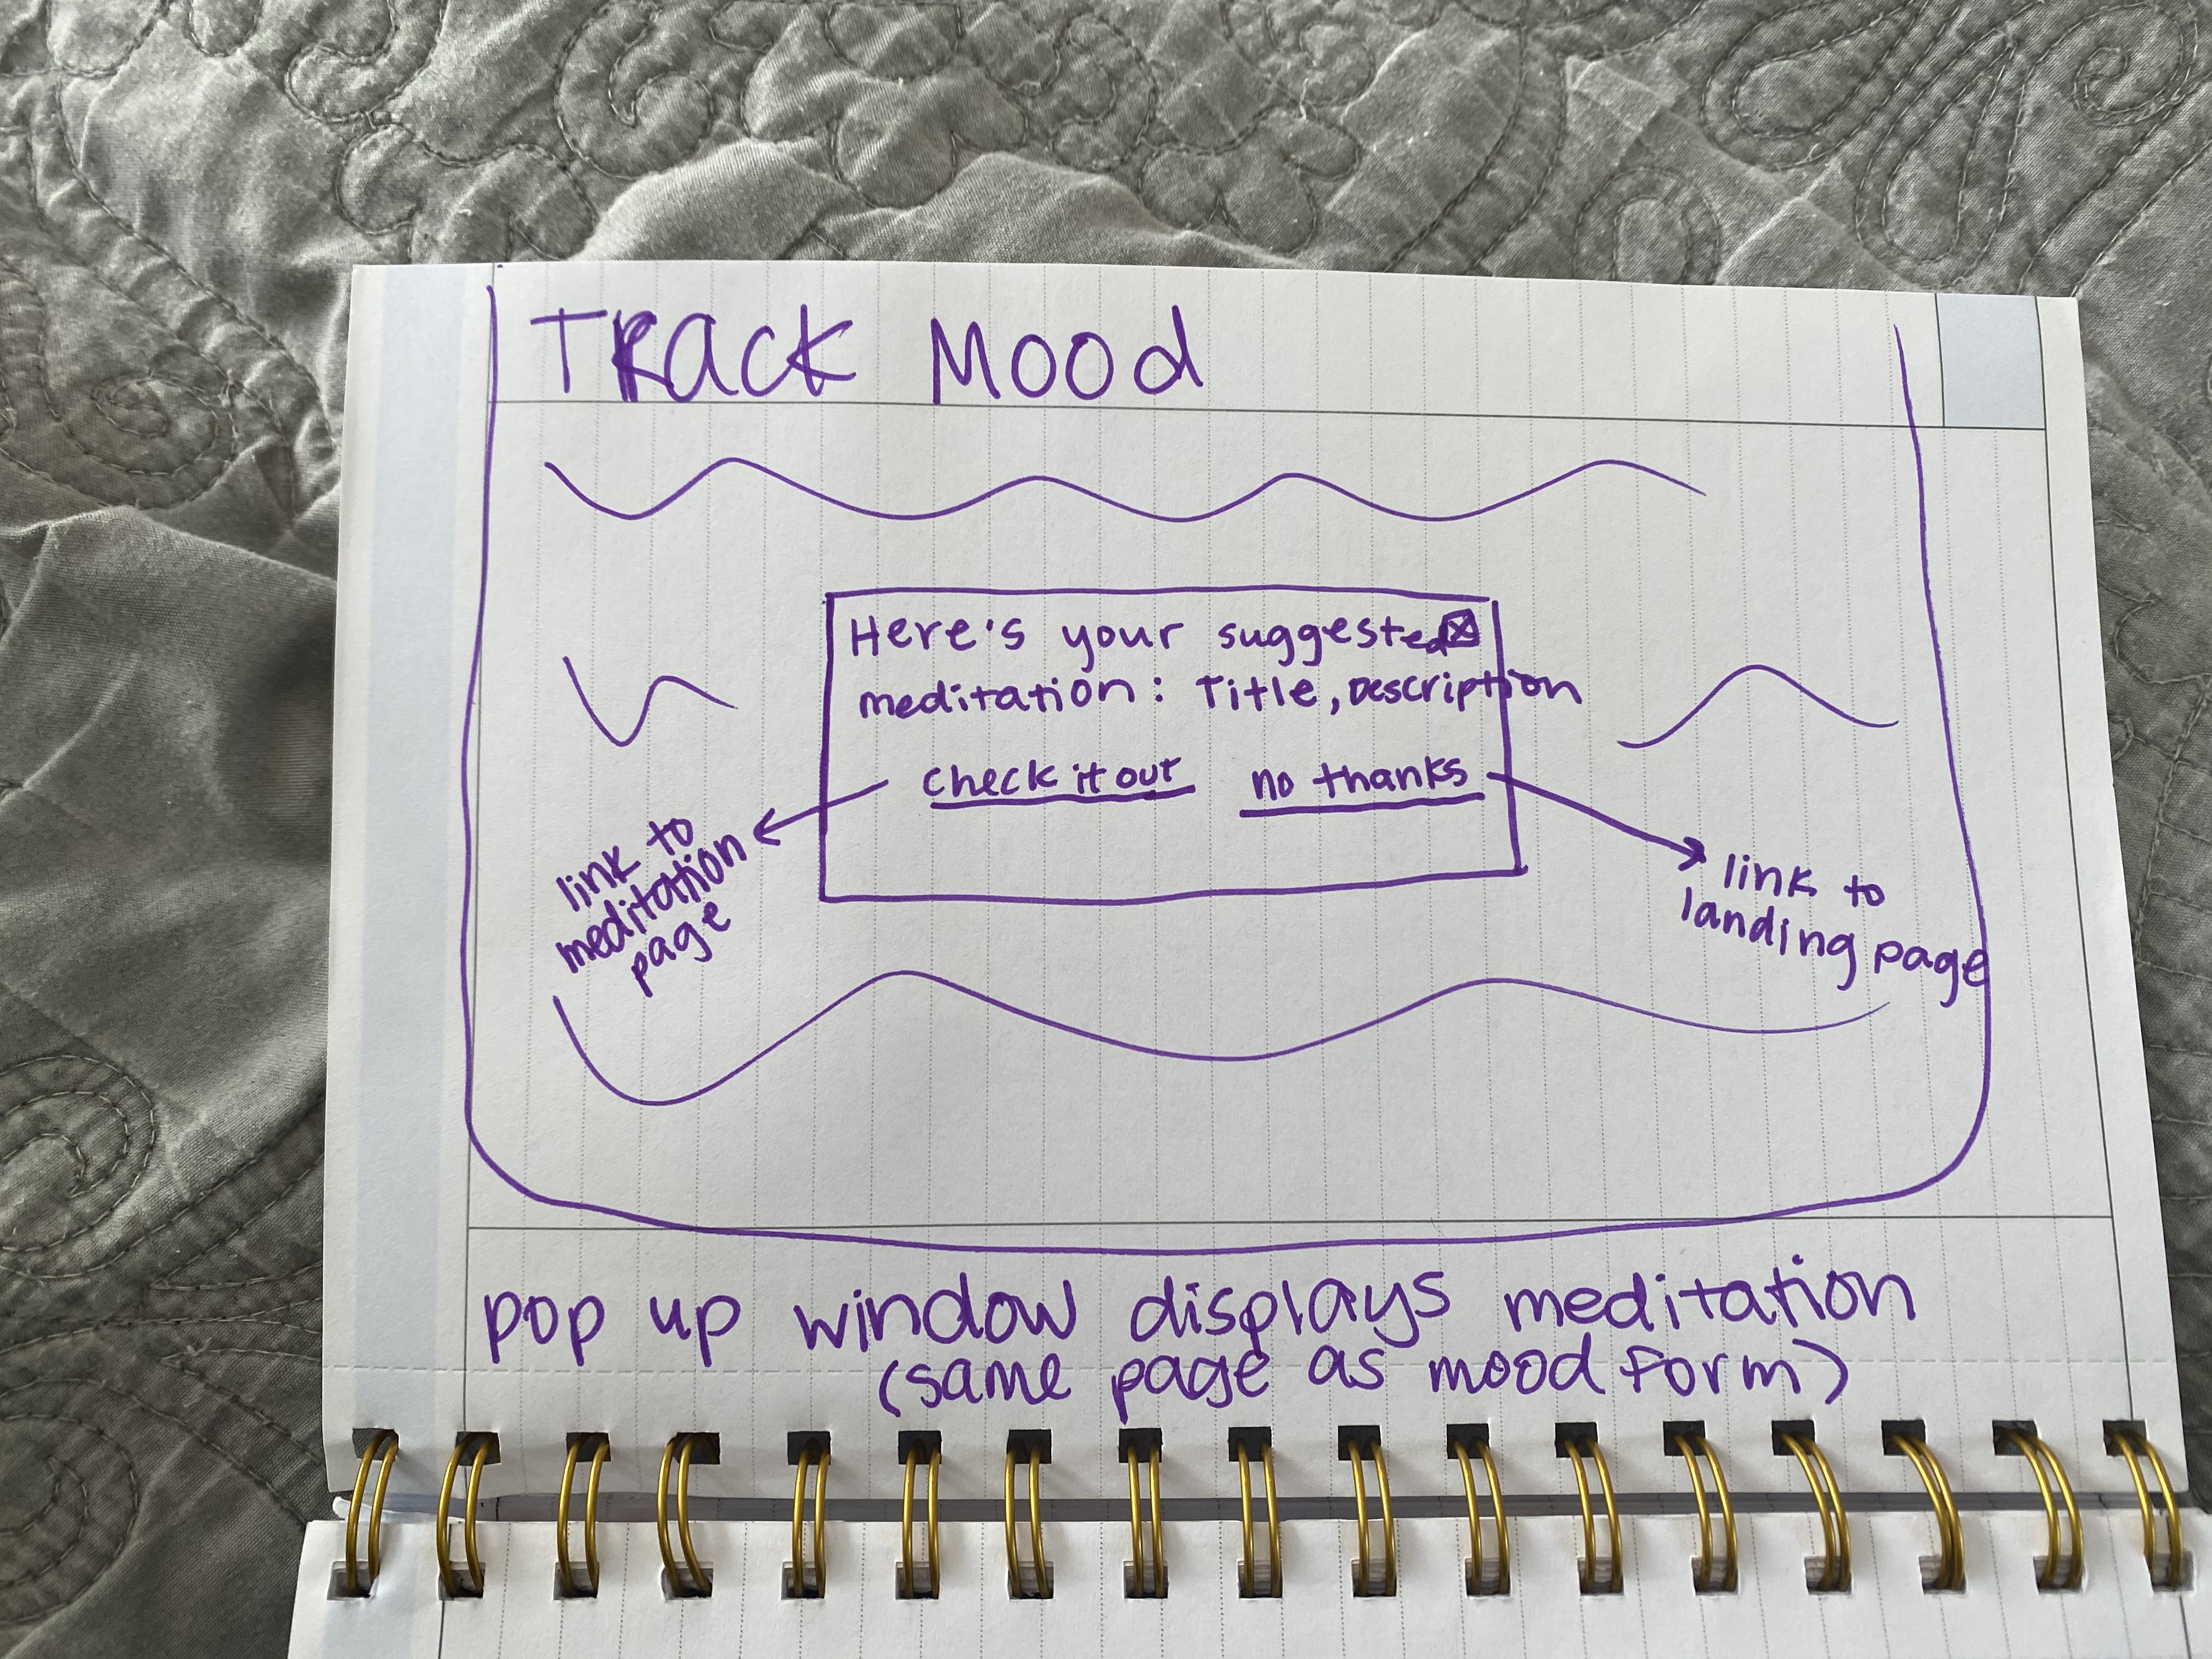 Track Mood
Here's your suggested
meditation: Title, Description
check it out no thanks
link to
meditation
page
link to
landing page
pop up window displays meditation
(same page as mood form)